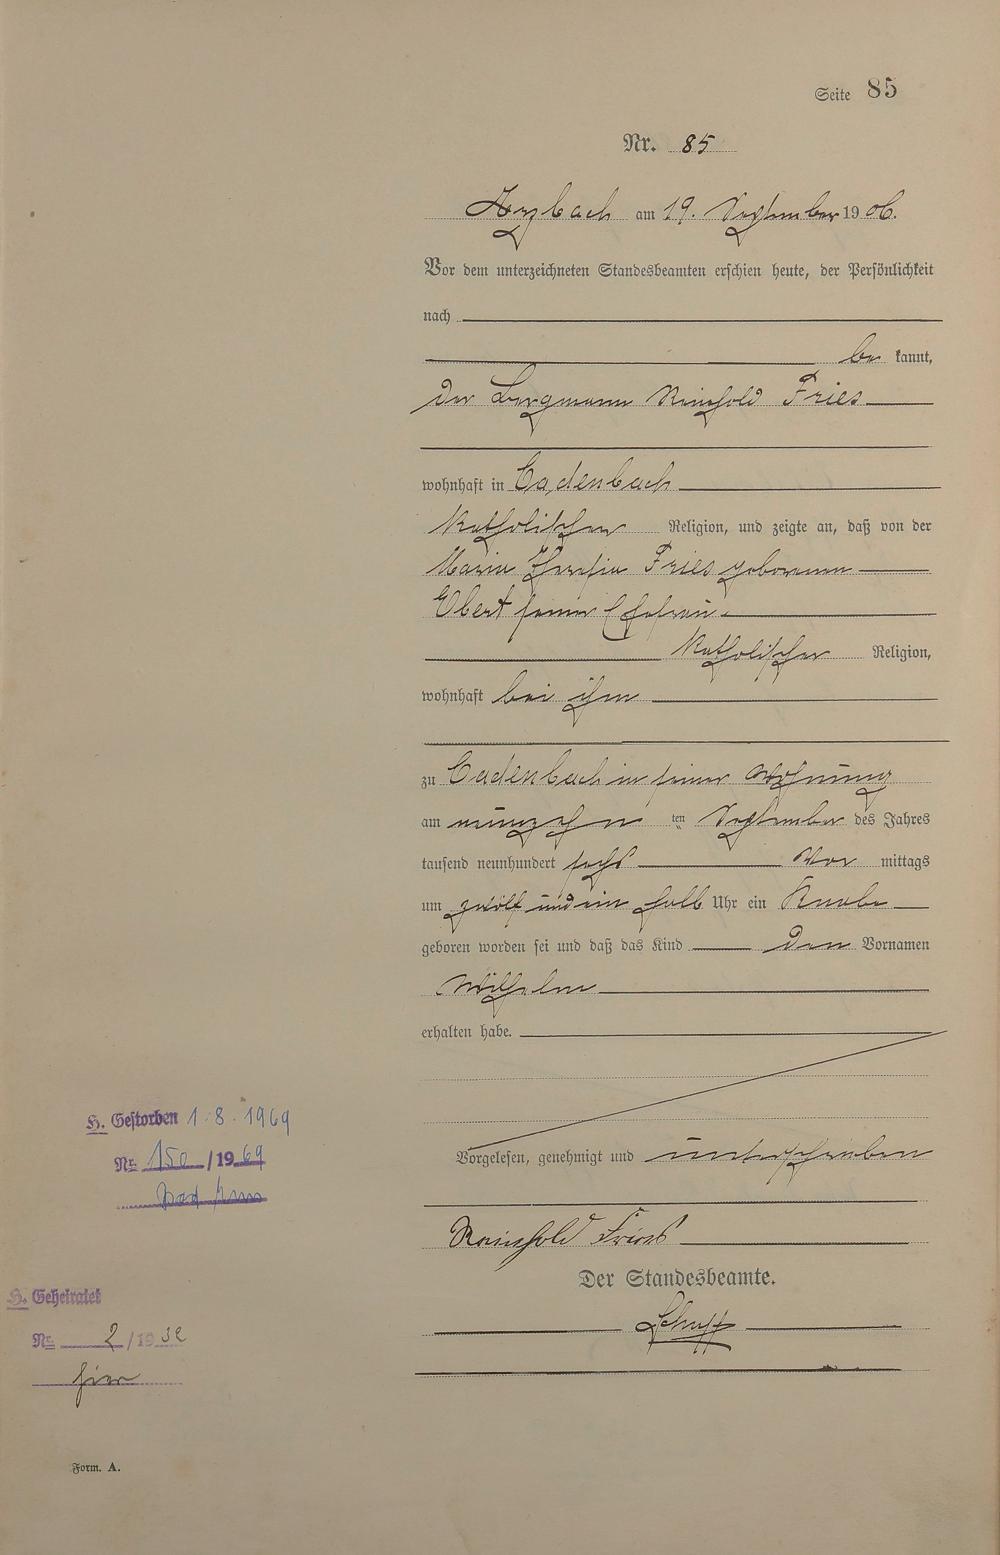 Seite 85
Nr. 85
Arzbach am 19. September 1906.
Vor dem unterzeichneten Standesbeamten erschien heute, der Persönlichkeit
nach
be kannt,
der Bergmann Reinhold Fries
wohnhaft in Cadenbach
katholischer Religion, und zeigte an, daß von der
Maria Theresia Fries geborenen
Ebert seiner Ehefrau
katholischer Religion,
wohnhaft bei ihm
zu Cadenbach in seiner Wohnung
am neunzehn ten September des Jahres
tausend neunhundert sechs Vor mittags
um zwölf und ein halb Uhr ein Knabe
geboren worden sei und daß das Kind den Vornamen
Wilhelm
erhalten habe.
Vorgelesen, genehmigt und unterschrieben
Reinhold Fries
Der Standesbeamte.
H. Gestorben 1.8.1969
Nr. 150/1969
Bad Ems
H. Geheiratet
Nr. 2/1932
hier
Form. A.